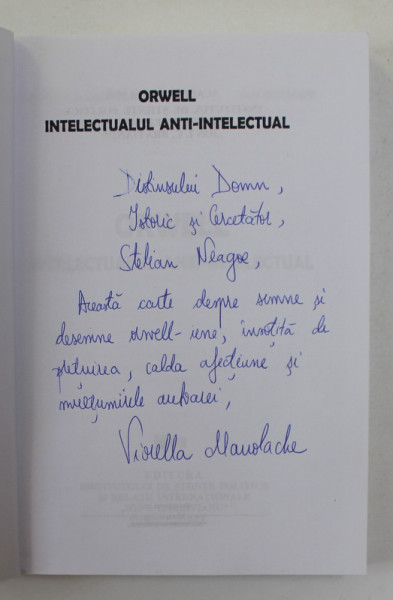 ORWELL
INTELECTUALUL ANTI-INTELECTUAL
Distinsului Domn,
Istoric și Cercetător,
Stelian Neagoe,
Această carte despre semne și
desemne orwell-iene, însoțită de
prețuirea, calda afecțiune și
mulțumirile autoarei,
Viorella Manolache